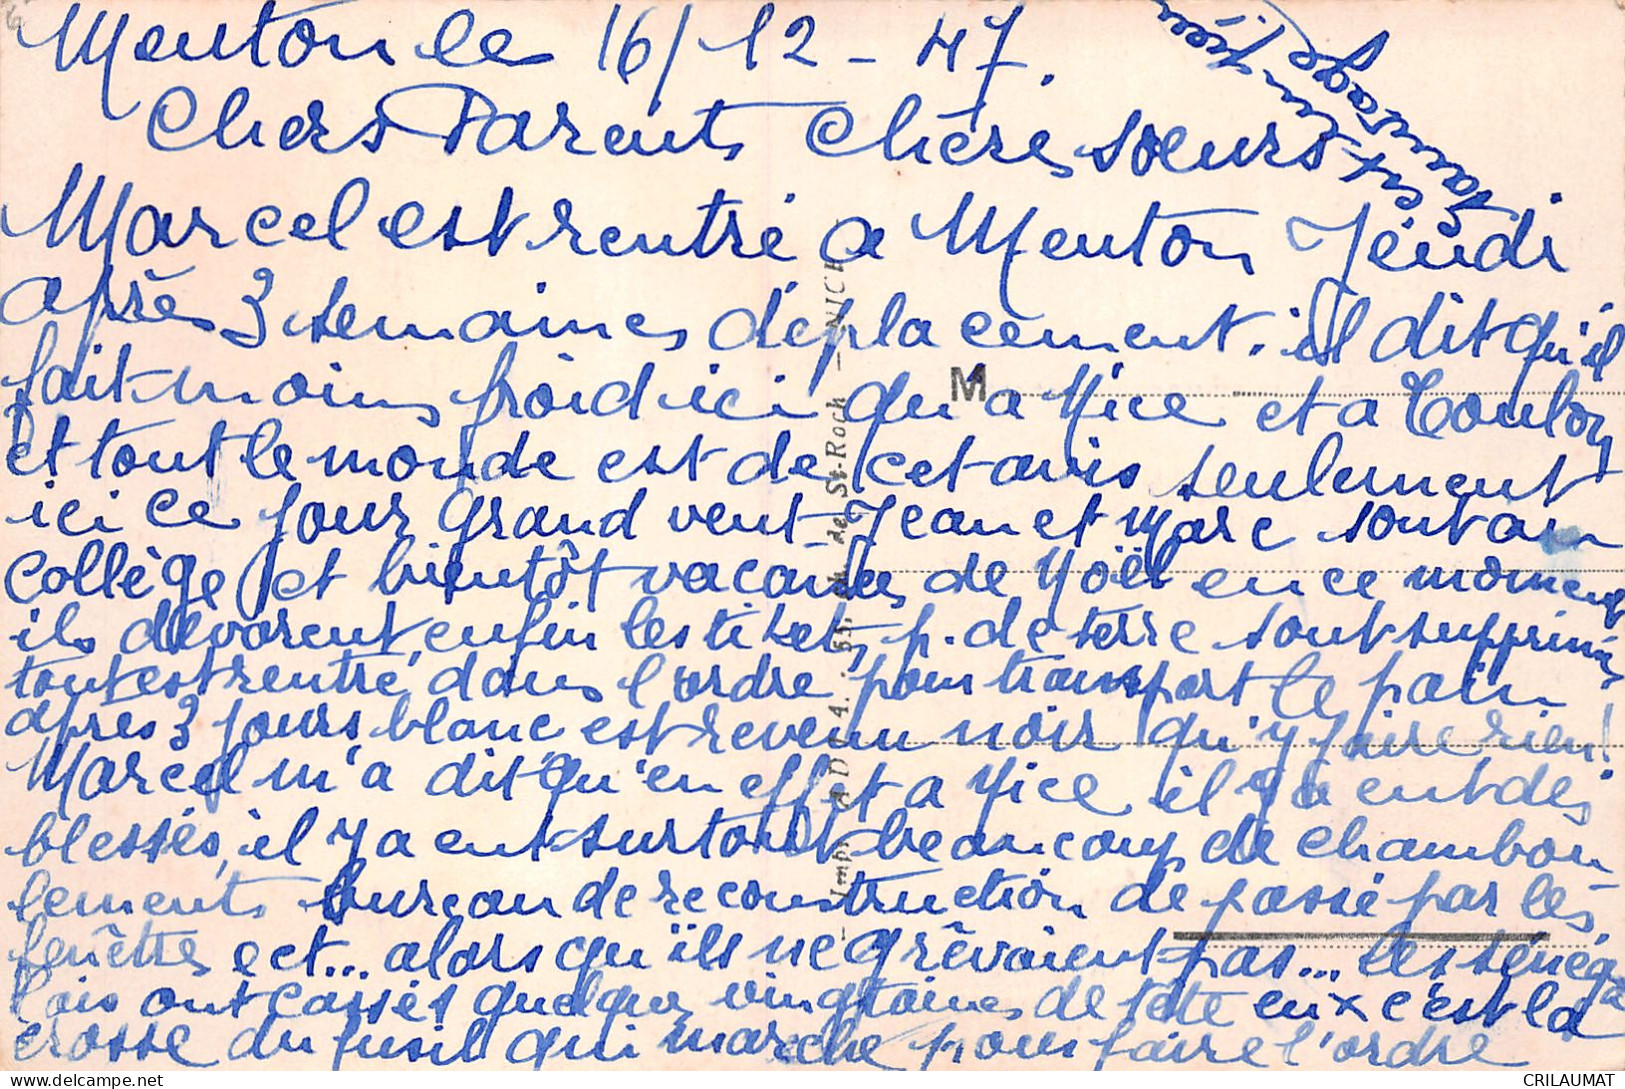 Menton le 16/12-47.
Chers Parents Chères soeurs
Marcel est rentré a Menton Jeudi
après 3 semaines déplacement. il dit qu'il
fait moins froid ici qu'a Nice et a Toulon
et tout le monde est de cet avis seulement
ici ce jour grand vent Jean et Marc sont au
collège et bientôt vacances de Noël en ce moment
ils dévorent, enfin les tikets p. de terre sont supprimés
tout est rentré dans l'ordre pour transport le pain
après 3 jours blanc est revenu noir qu'y faire rien!
Marcel m'a dit qu'en effet a Nice il y a eut des
blessés, il y a eut surtout beaucoup de chambou
lements bureau de reconstruction de passé par les
fenêtres ect... alors qu'ils ne grêvaient pas... les sénéga
lais ont cassés quelque vingtaines de tête eux c'est la
crosse du fusil qui marche pour faire l'ordre
davantage!
M
Imp. ch. de St-Roch — NICE
CRILAUMAT